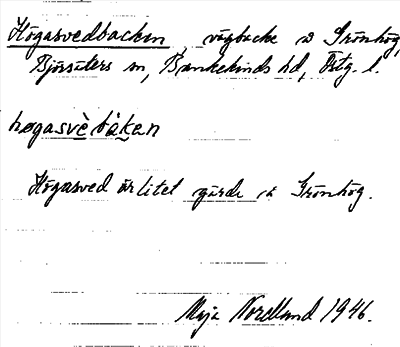 Högasvedbacken, vägbacke å Grönhög,
Björsäters sn, Bankekinds hd, Östg. l.
høgasvèbàken
Högasved är litet gärde å Grönhög.
Maja Nordlund 1946.